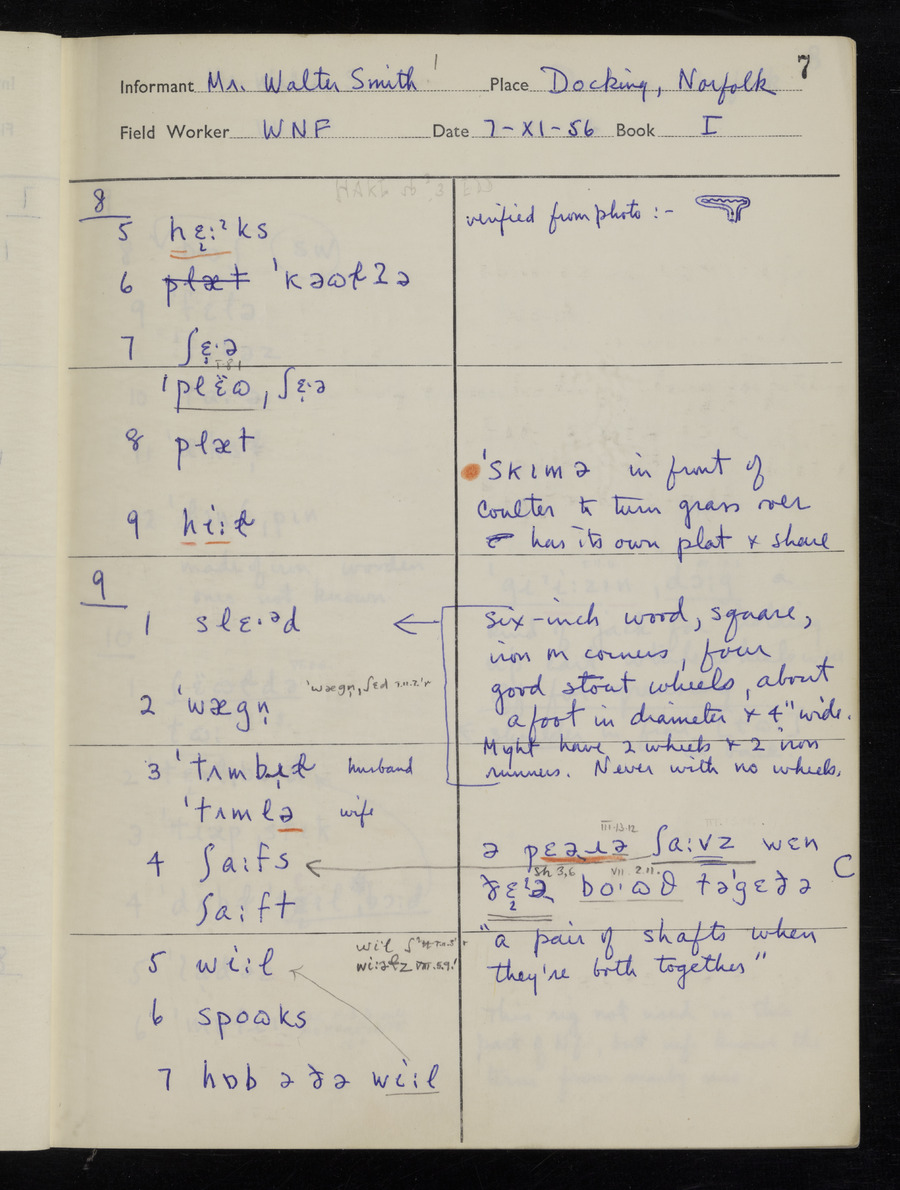 7
Informant Mr. Walter Smith Place Docking, Norfolk
Field Worker WNF Date 7-XI-56 Book I
8
5 hɛ̣:ˀks
verified from photo :-
6 plæt ˈkəωɫʔə
7 ʃɛ̣·ə
ˈplɛ̈ω, ʃɛ̣·ə
8 plæt
ˈskɪmə in front of
coulter to turn grass over
9 hi:ɫ
has its own plat & share
9
1 slɛ·ᵊd
six-inch wood, square,
iron on corners, four
good stout wheels, about
2 ˈwægn̩ ˈwægn̩, ʃɛd
a foot in diameter & 4" wide.
Might have 2 wheels & 2 iron
runners. Never with no wheels.
3 ˈtʌmbɪ̣ɫ husband
ˈtʌmlə wife
4 ʃa:fs
III.13.12
ə pɛəɹə ʃa:vz wɛn
Sh 3,6 VII. 2.11.
ðɛ̣ˀə bo·ωθ təˈgɛðə C
ʃa:ft
"a pair of shafts when
they're both together"
5 wi:l
6 spoωks
7 hɒb ə ðə wi:l